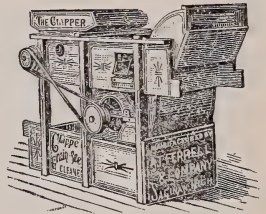 THE CLIPPER
Clipper
Grain Seed
CLEANER
MANUFACTURED BY
FERRELL
& COMPANY
SAGINAW, MICH.